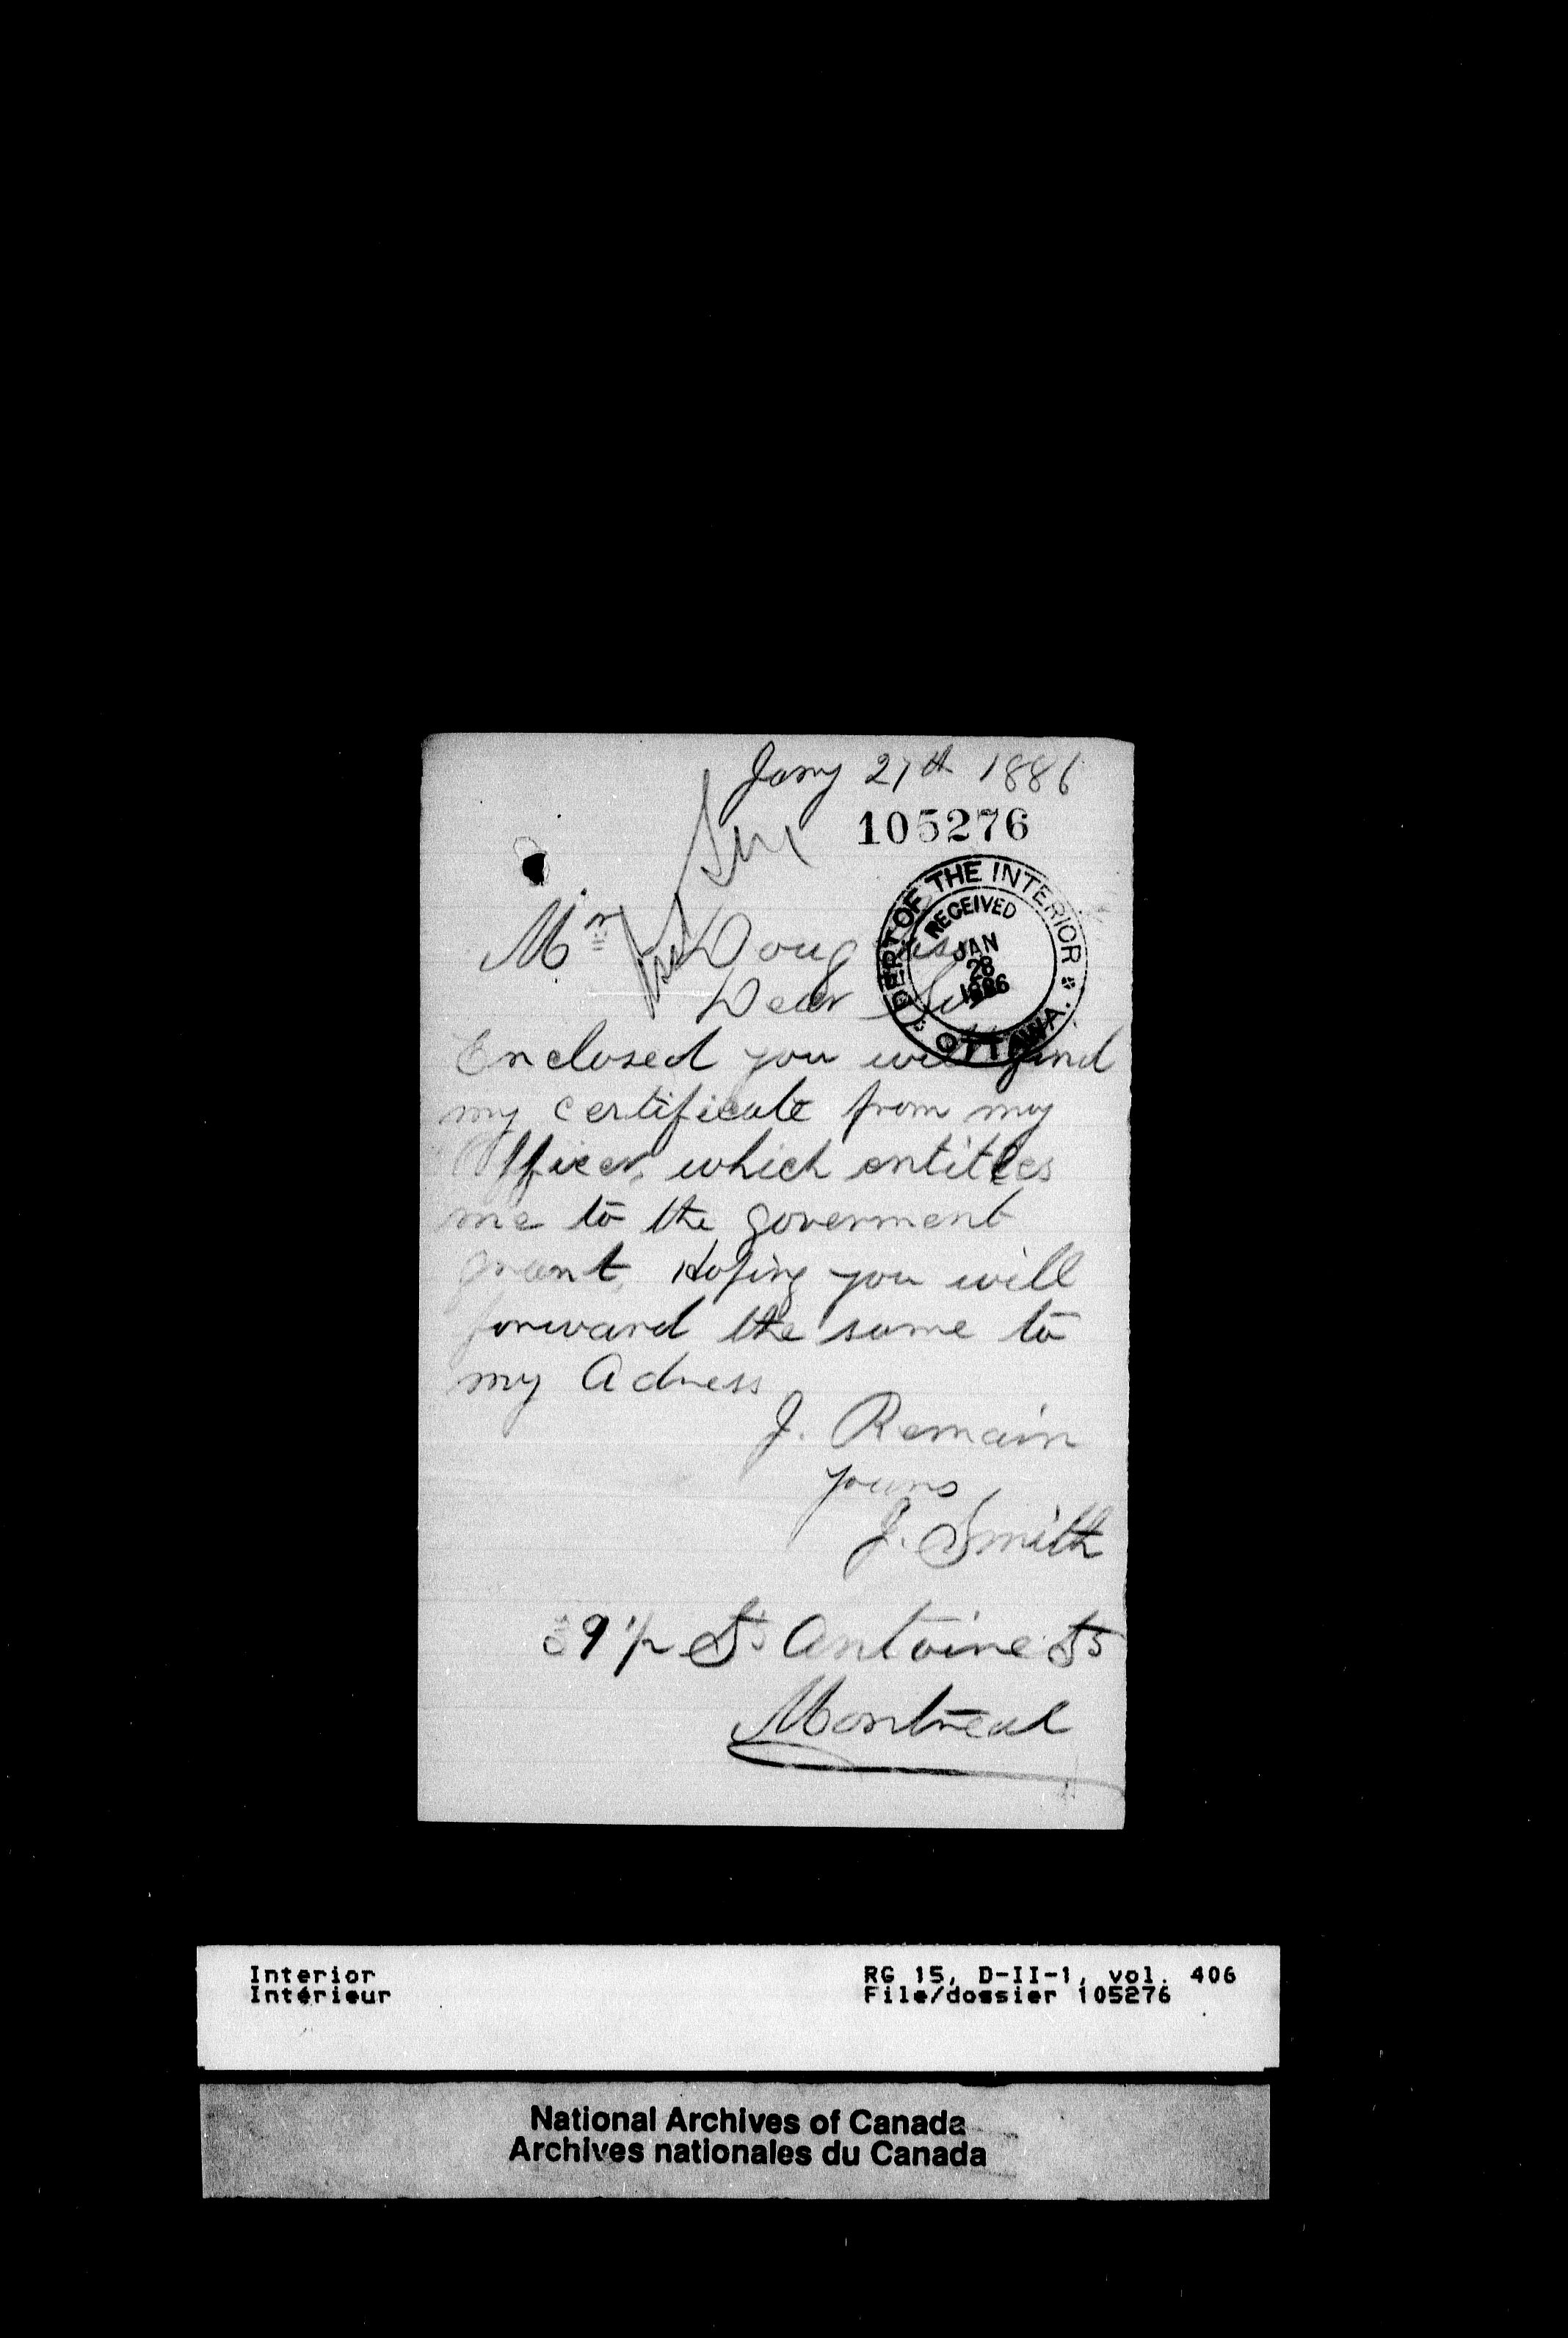 Jany 27th 1886
105276
Mr Douglas
DEPT OF THE INTERIOR
RECEIVED
JAN
28
1886
OTTAWA.
Dear Sir
Enclosed you will find
my certificate from my
Officer, which entitles
me to the goverment
grant, Hoping you will
forward the same to
my Adress
J. Remain
yours
J. Smith
39 1/2 St Antoine St
Montreal
Interior
Intérieur
RG 15, D-II-1, vol. 406
File/dossier 105276
National Archives of Canada
Archives nationales du Canada